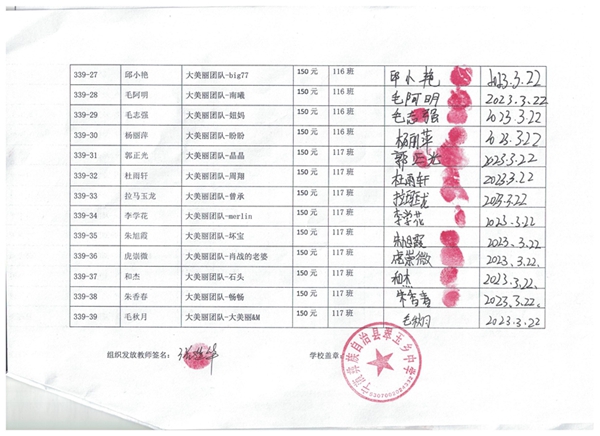 339-27 邱小艳 大美丽团队-big77 150元 116班 邱小艳 2023.3.22
339-28 毛阿明 大美丽团队-南曦 150元 116班 毛阿明 2023.3.22
339-29 毛志强 大美丽团队-妞妈 150元 116班 毛志强 2023.3.22
339-30 杨丽萍 大美丽团队-盼盼 150元 116班 杨丽萍 2023.3.22
339-31 郭正光 大美丽团队-晶晶 150元 117班 郭正光 2023.3.22
339-32 杜雨轩 大美丽团队-周翔 150元 117班 杜雨轩 2023.3.22
339-33 拉马玉龙 大美丽团队-曾承 150元 117班 2023.3.22
339-34 李学花 大美丽团队-merlin 150元 117班 李学花 2023.3.22
339-35 朱旭霞 大美丽团队-坏宝 150元 117班 朱旭霞 2023.3.22.
339-36 虎崇微 大美丽团队-肖战的老婆 150元 117班 虎崇微 2023.3.22.
339-37 和杰 大美丽团队-石头 150元 117班 和杰 2023.3.22.
339-38 朱香春 大美丽团队-畅畅 150元 117班 朱香春 2023.3.22.
339-39 毛秋月 大美丽团队-大美丽AM 150元 117班 毛秋月 2023.3.22
组织发放教师签名： 学校盖章：